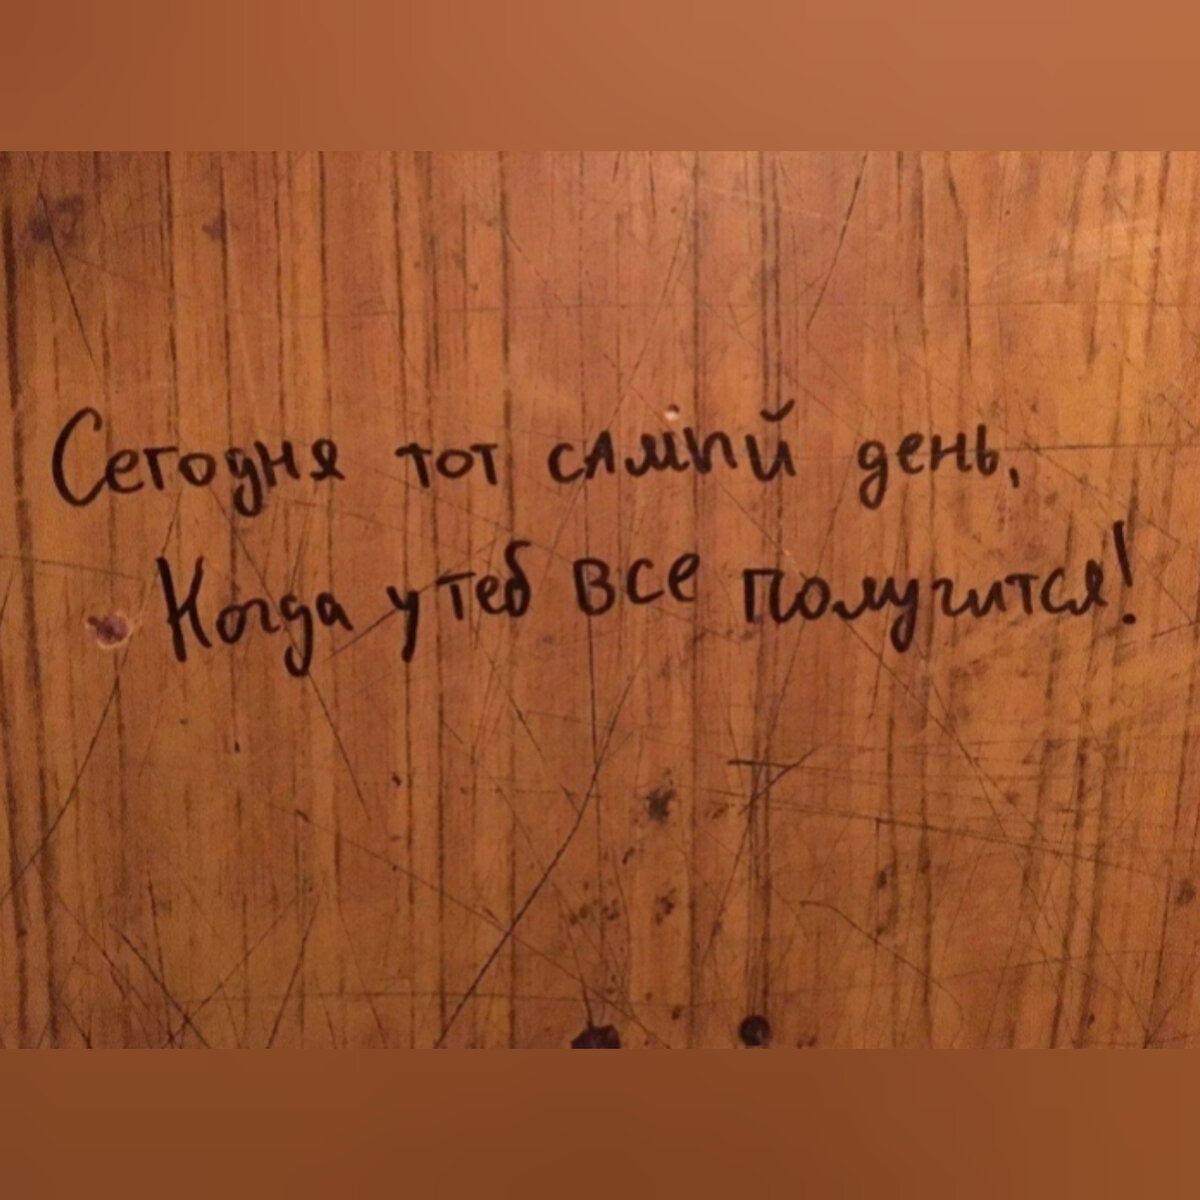 Сегодня тот самый день,
Когда у теб все получится!